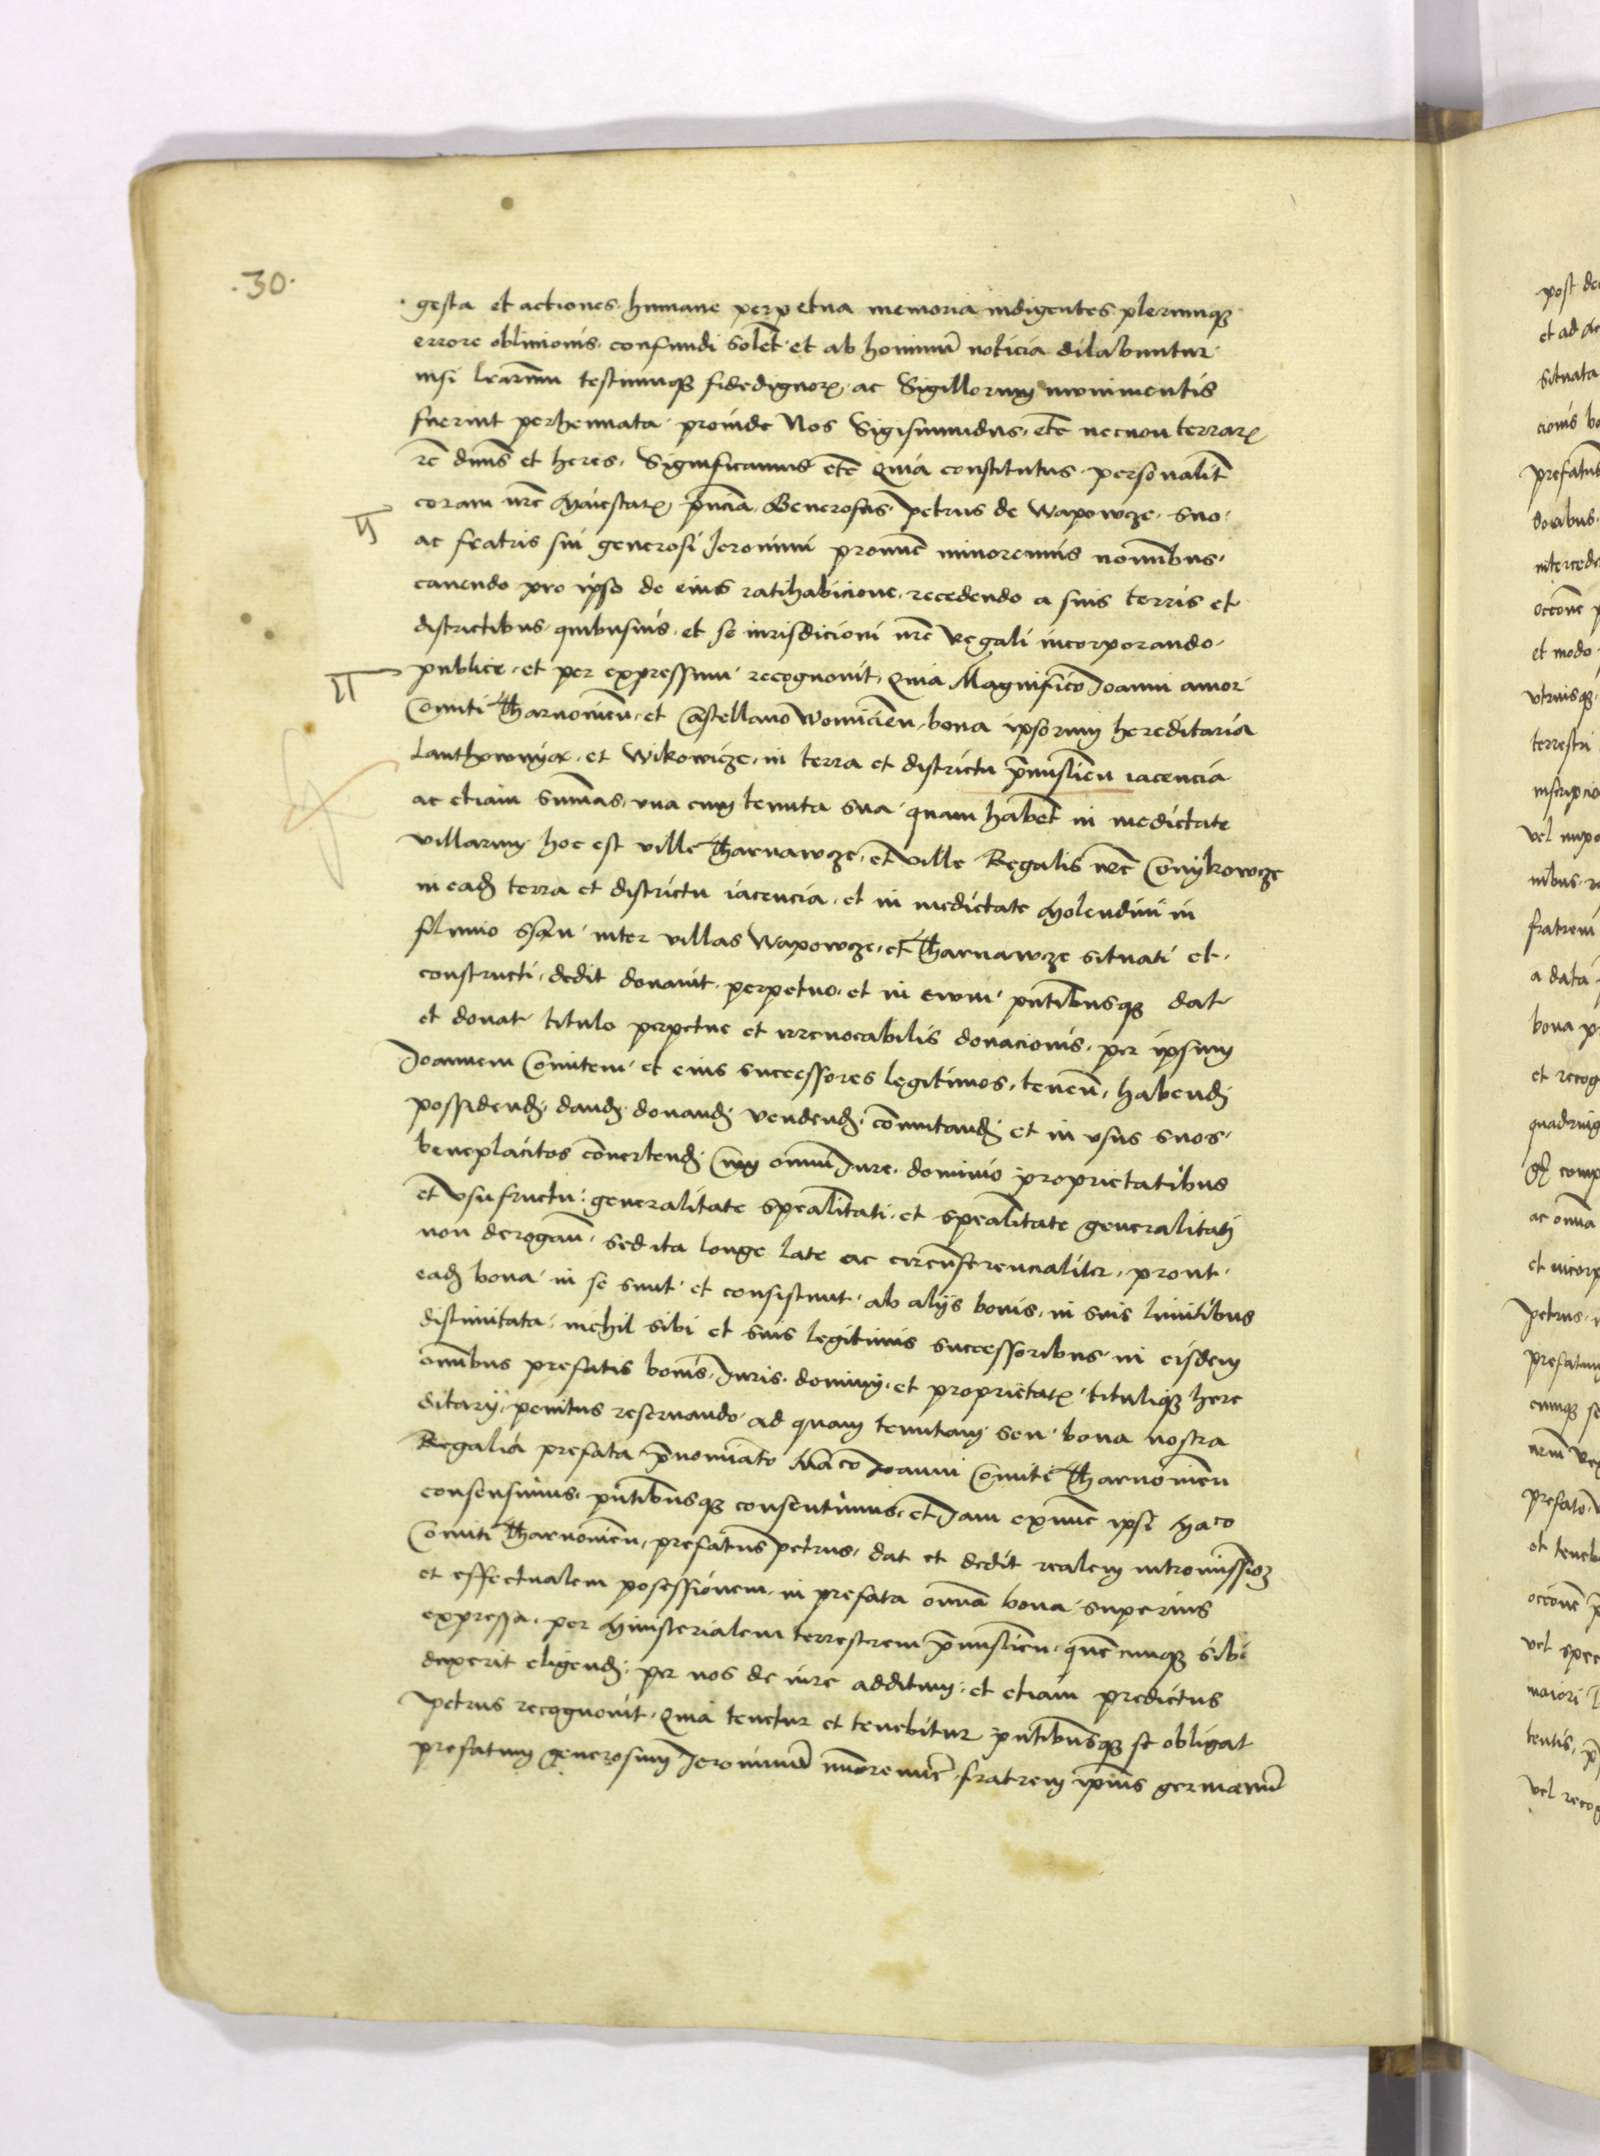 .30.
gesta et actiones humane perpetua memoria indigentes plerumq;
errore oblivionis confundi solet et ab hominu noticia dilabuntur
nisi lrarum testiumq; fidedignor ac Sigillorum monimentis
fuerint perhennata proinde Nos Sigismundus etc necnon terrar
re dnus et heres Significamus etc Quia constitutus personalit
coram nre Maiestat pncia Generosus petrus de Wapowcze suo
ac fratris sui generosi Jeronimi minorennis nominibus
cavendo pro ipso de eius ratihabicione recedendo a suis terris et
districtibus quibusvis et se iurisdicioni nre regali incorporando
publice et per expressum recognovit Quia Magnifico Joanni amor
Comiti Tharnowien et Castellano Woinicien bona ipsorum hereditaria
et Wikowicze in terra et districtu pmislien iacencia
ac etiam sumas una cum tenuta sua quam habet in medietate
villarum hoc est ville Tharnawcze et ville Regalis nre Conykowcze
in ead terra et districtu iacencia et in medietate Molendini in
fluvio Ssan inter villas Wapowcze et Tharnawcze situati et
constructi dedit donavit perpetuo et in evum pntibusq; dat
et donat titulo perpetue et irrevocabilis donacionis per ipsum
Joannem Comitem et eius successores legitimos tenen habend
possidend dand donand vendend comutand et in usus suos
beneplacitos convertend Cum omni Jure dominio proprietatibus
et usufructu generalitate spealitati et spealitate generalitati
non derogan sed ita longe late ac circumferencialiter prout
ead bona in se sunt et consistunt ab alijs bonis in suis limitibus
distinitata nichil sibi et suis legitimis successoribus in eisdem
omibus prefatis bonis Juris dominij et proprietat tituliq; here
ditarij penitus reservando ad quam tenutam seu bona nostra
Regalia prefata pnominato Mco Joanni Comiti Tharnowien
consensimus pntibusq; consentimus et Jam exnunc ipsi Mco
Comiti Tharnowien prefatus petrus dat et dedit realem intromission
et effectualem posessionem in prefata omia bona superius
expressa per Ministerialem terrestrem pmislien quecumq; sibi
duxerit eligend per nos de iure additum et etiam predictus
petrus recognovit Quia tenetur et tenebitur pntibusq; se obligat
prefatum generosum Jeronimu minorenne fratrem ipius germanu